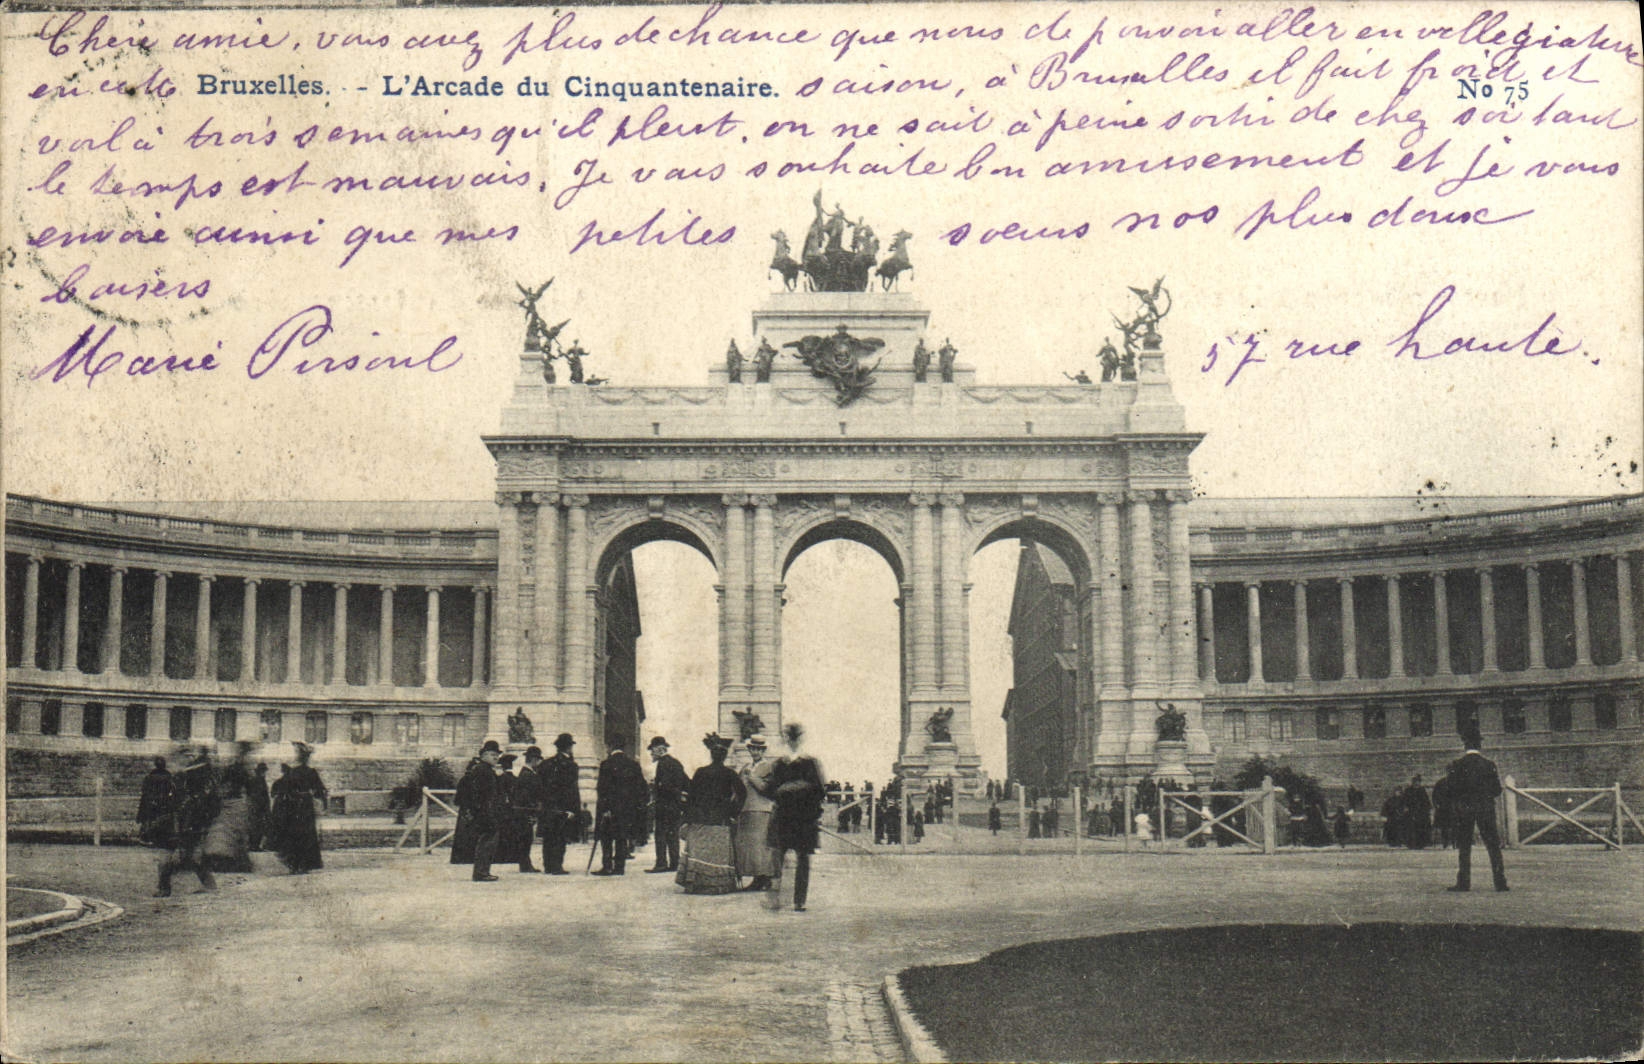 Chère amie, vous avez plus de chance que nous de pouvoir aller en villégiature
en cette Bruxelles. - L'Arcade du Cinquantenaire. saison, à Bruxelles il fait froid et No 75
voilà trois semaines qu'il pleut, on ne sait à peine sortir de chez soi tant
le temps est mauvais. Je vous souhaite bon amusement et je vous
envoie ainsi que mes petites soeurs nos plus doux
baisers
Marie Persoul 57 rue haute.